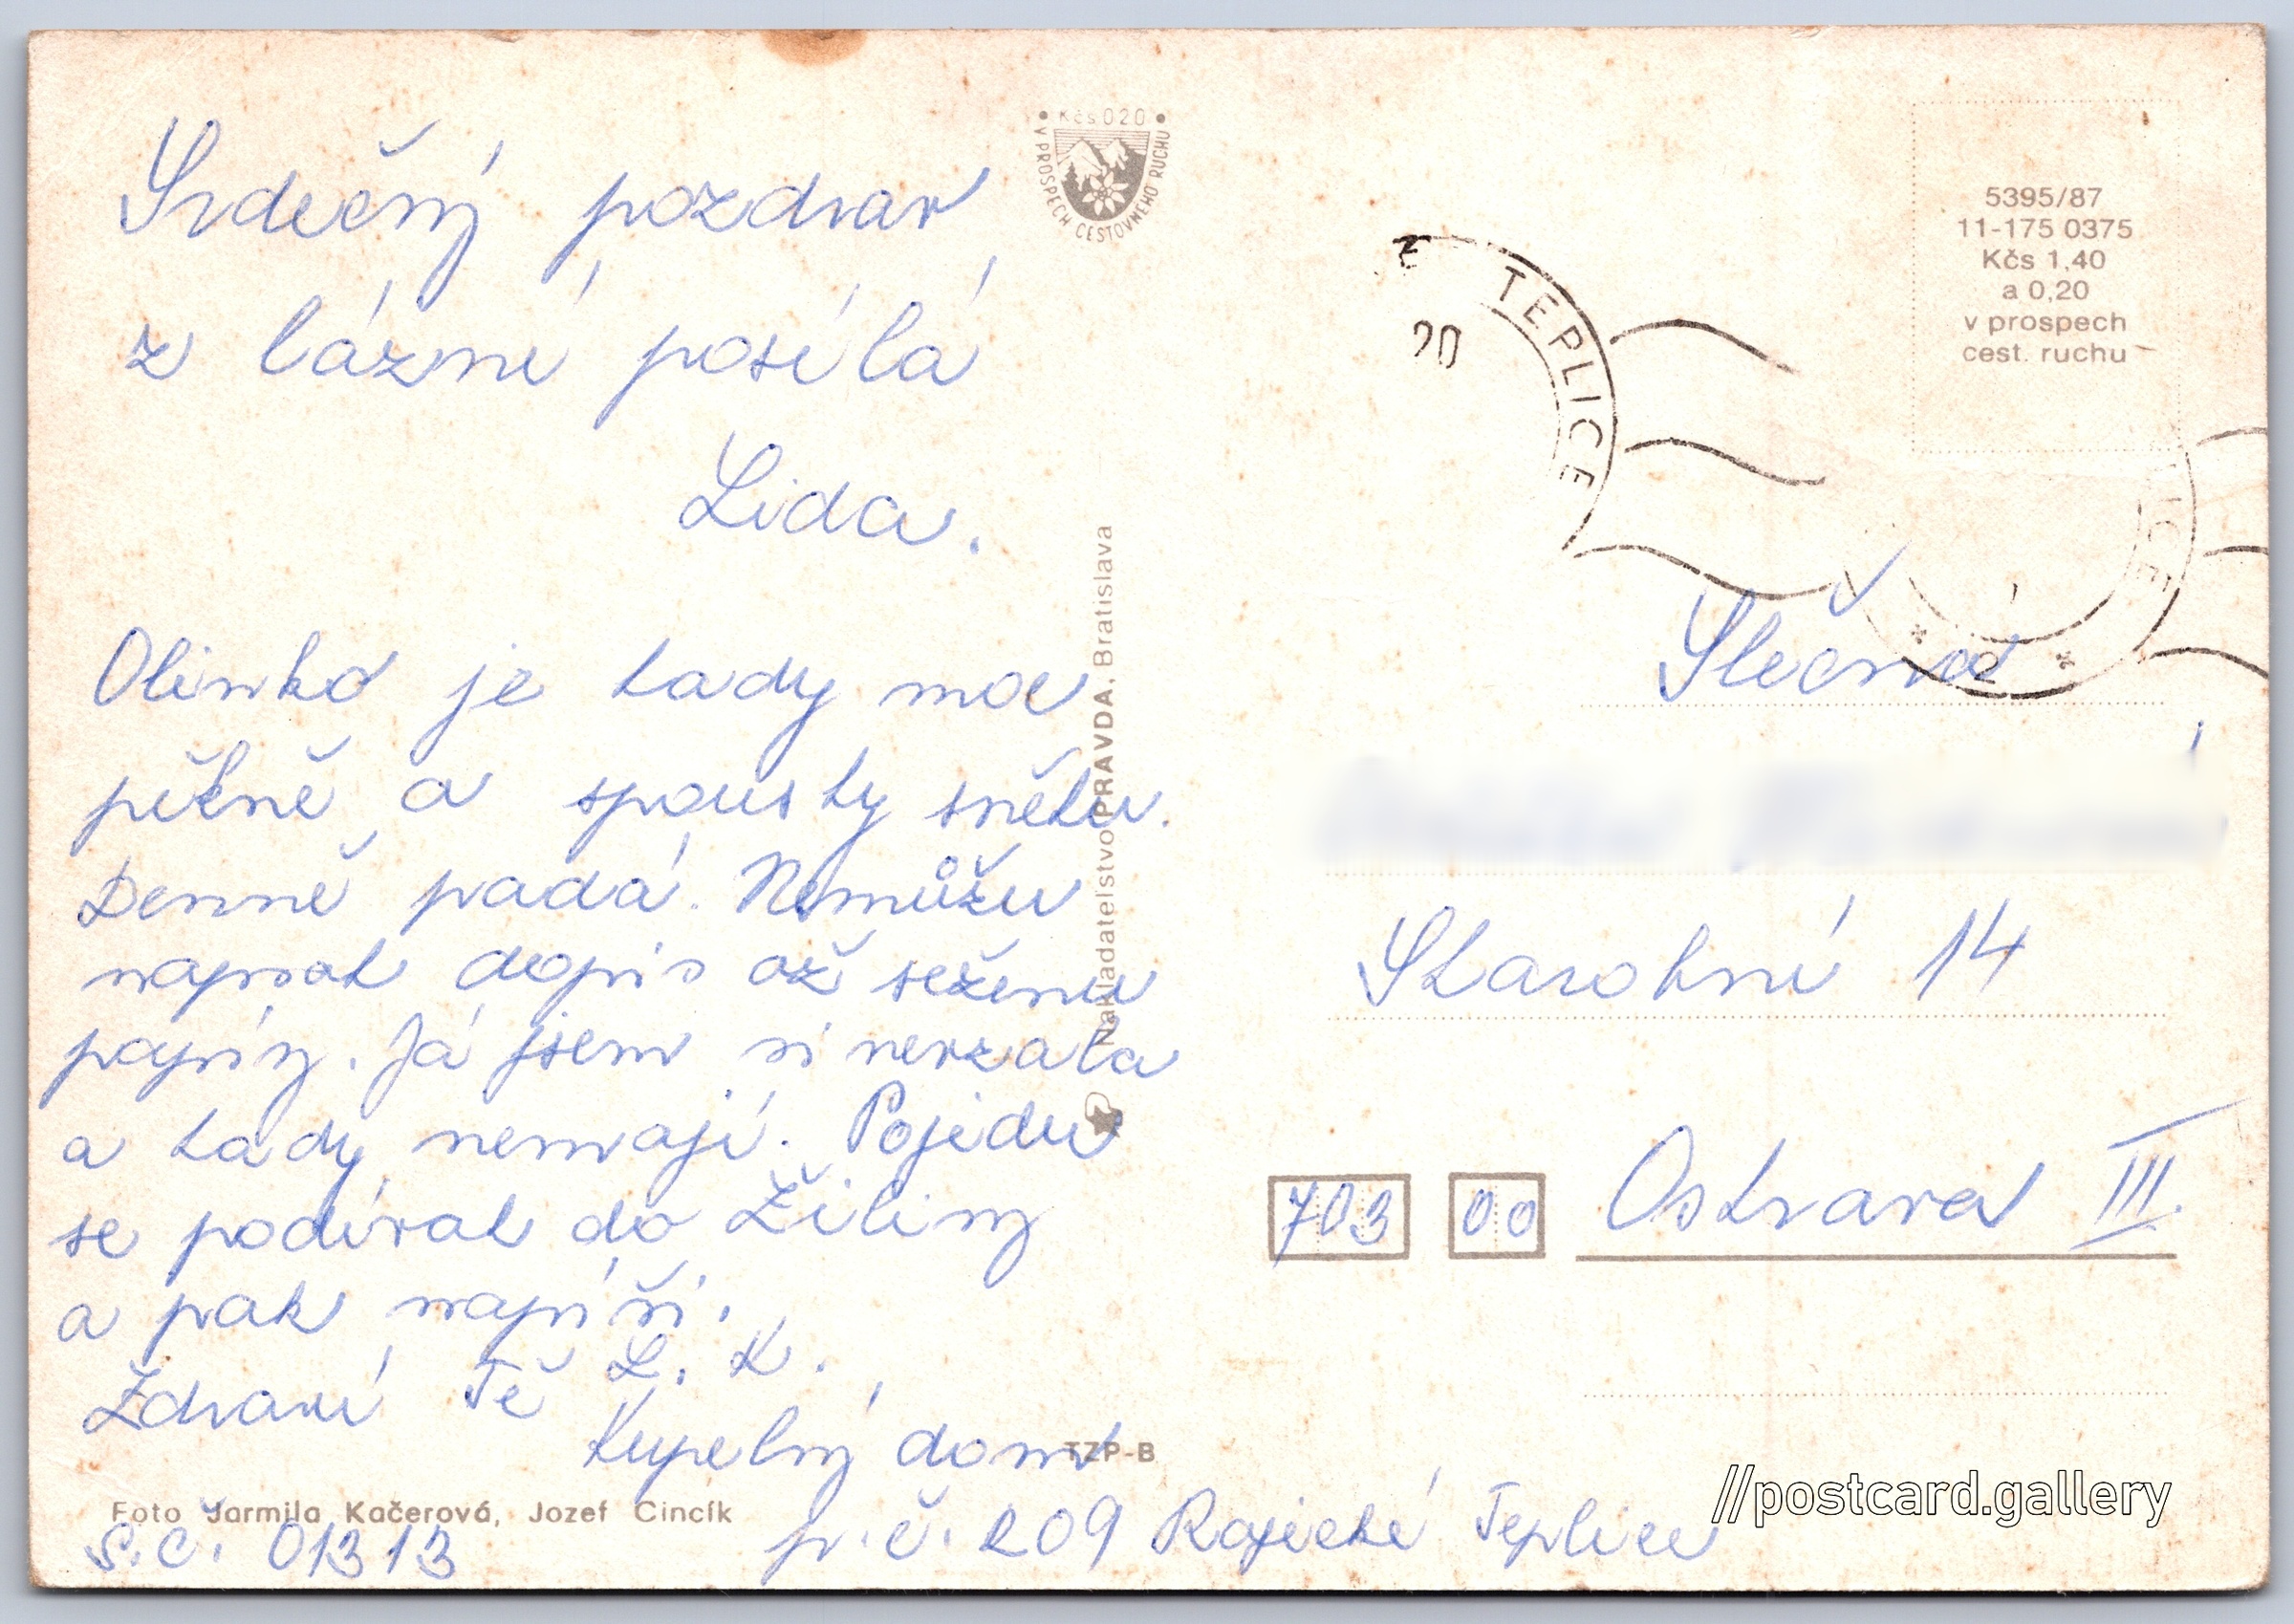 Srdečný pozdrav
z lázní posílá
Lida.
Olinko je tady moc
pěkně a spousty sněhu.
Denně padá. Nemůžu
napsat dopis až seženu
papír. Já jsem si nevzala
a tady nemají. Pojedu
se podívat do Žiliny
a pak napíši.
Zdraví Tě L. K.
Kupelný dom
s.č. 01313 p.č. 209 Rajecké Teplice
Foto Jarmila Kačerová, Jozef Cincík
TZP-B
• Kčs 020 •
V PROSPECH CESTOVNÉHO RUCHU
Nakladateľstvo PRAVDA, Bratislava
5395/87
11-175 0375
Kčs 1,40
a 0,20
v prospech
cest. ruchu
TEPLICE
20
Slečna
Starobní 14
703 00 Ostrava III.
//postcard.gallery